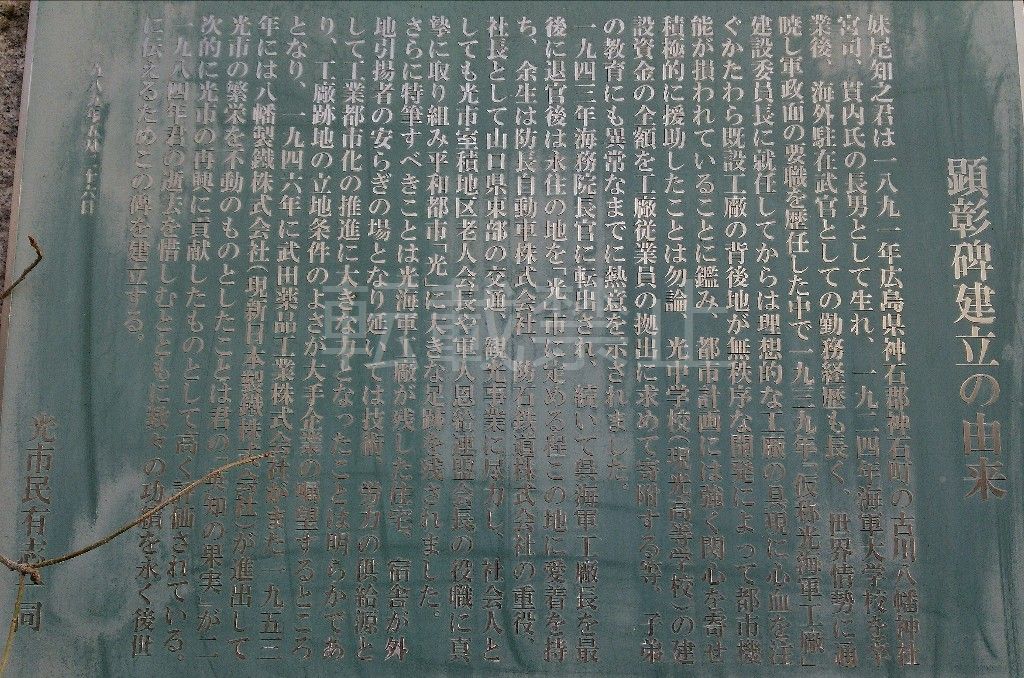 顕彰碑建立の由来
妹尾知之君は一八九一年広島県神石郡神石町の古川八幡神社
宮司、貫内氏の長男として生れ、一九二四年海軍大学校を卒
業後、海外駐在武官としての勤務経歴も長く、世界情勢に通
暁し軍政面の要職を歴任した中で一九三九年「仮称光海軍工廠」
建設委員長に就任してからは理想的な工廠の具現に心血を注
ぐかたわら既設工廠の背後地が無秩序な開発によって都市機
能が損われていることに鑑み、都市計画には強く関心を寄せ
積極的に援助したことは勿論、光中学校(現光高等学校)の建
設資金の全額を工廠従業員の拠出に求めて寄附する等、子弟
の教育にも異常なまでに熱意を示されました。
一九四三年海務院長官に転出され、続いて呉海軍工廠長を最
後に退官後は永住の地を「光」市に定める程この地に愛着を持
ち、余生は防長自動車株式会社、防石鉄道株式会社の重役、
社長として山口県東部の交通、観光事業に尽力し、社会人と
しても光市室積地区老人会長や軍人恩給連盟会長の役職に真
摯に取り組み平和都市「光」に大きな足跡を残されました。
さらに特筆すべきことは光海軍工廠が残した住宅、宿舎が外
地引揚者の安らぎの場となり延いては技術、労力の供給源と
して工業都市化の推進に大きな力となったことは明らかであ
り、工廠跡地の立地条件のよさが大手企業の嘱望するところ
となり、一九四六年に武田薬品工業株式会社がまた一九五三
年には八幡製鐵株式会社(現新日本製鐵株式会社)が進出して
光市の繁栄を不動のものとしたことは君の「英知の果実」が二
次的に光市の再興に貢献したものとして高く評価されている。
一九八四年君の逝去を惜しむとともに数々の功績を永く後世
に伝えるためこの碑を建立する。
一九八九年五月二十六日
光市民有志一同
転載禁止